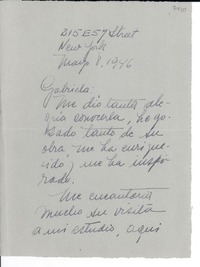 215 E 57 Street
New York
Mayo 8, 1946
Gabriela:
Me dio tanta ale-
gría conocerla, he go-
zado tanto de su
obra me ha enrique-
cido, y me ha inspi-
rado.
Me encantaría
mucho su visita
a mi estudio, aquí